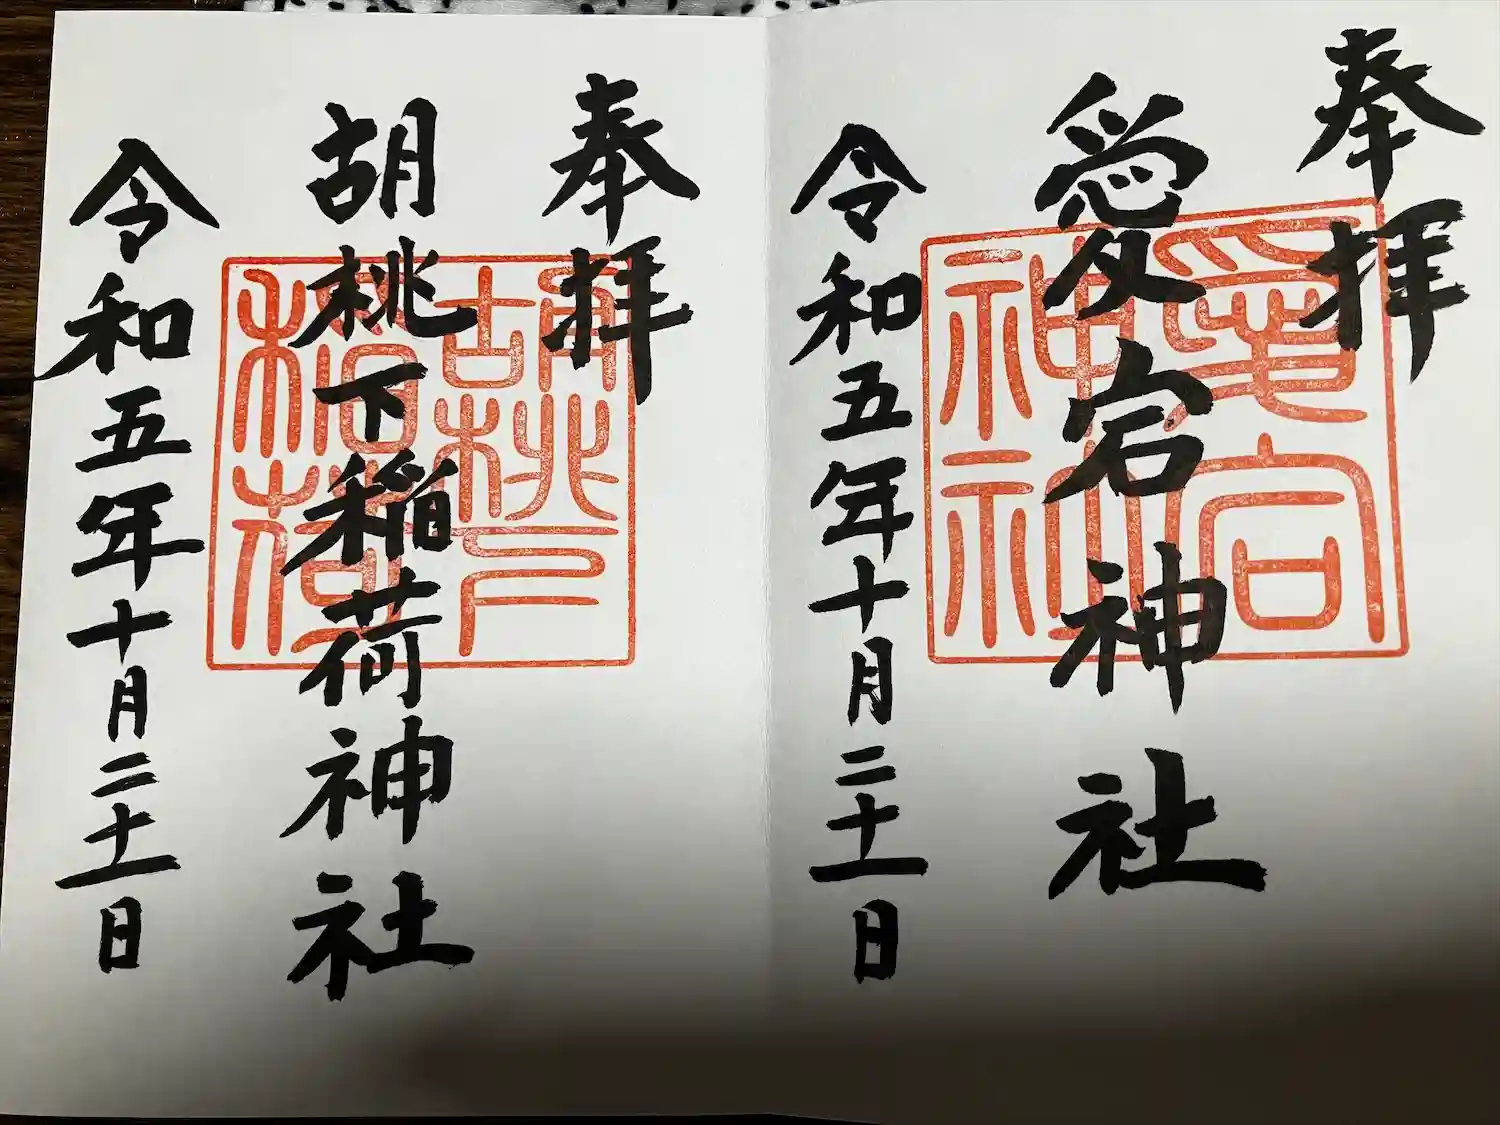 奉拝
愛宕神社
愛宕
神社
令和五年十月二十一日
奉拝
胡桃下稲荷神社
胡桃下
稲荷
令和五年十月二十一日